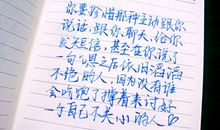 你要珍惜那种主动跟你
说话，跟你聊天，给你
发大巨信，甚至在你说了
一句“嗯”之后依旧滔滔
不绝的人，因为没有谁
会吃饱了撑着来讨好
一个自己不关心的人！